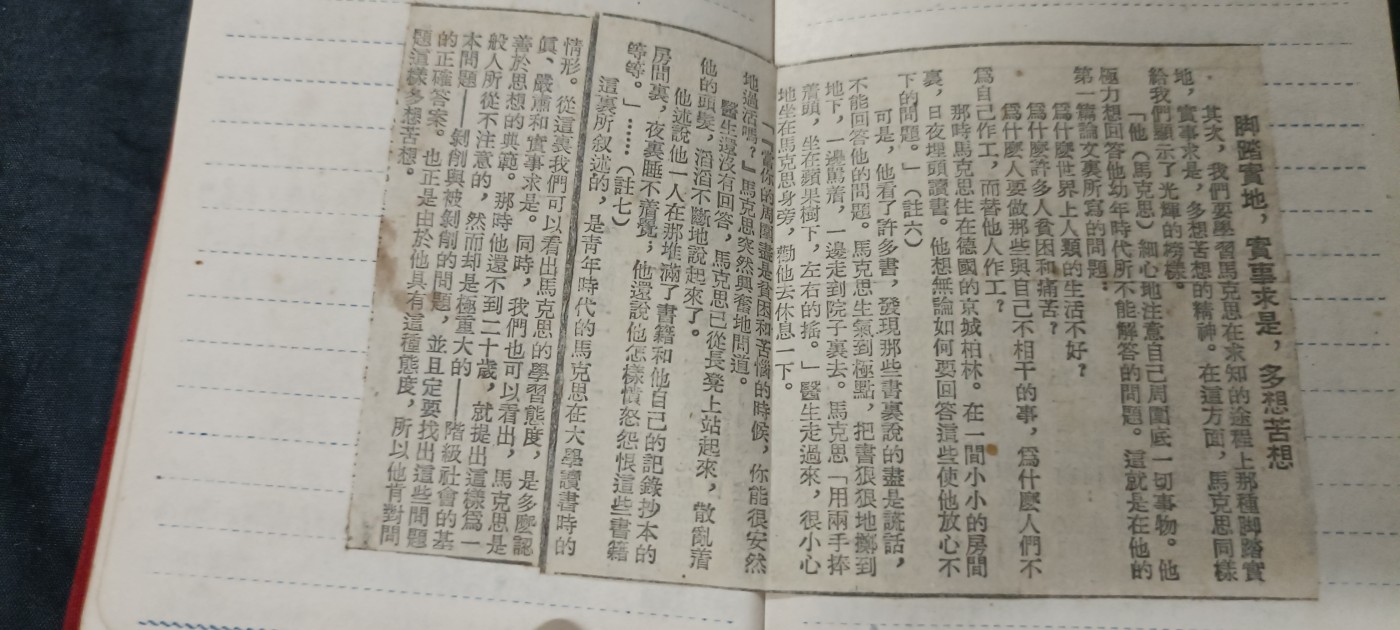 脚踏實地，實事求是，多想苦想
其次，我們要學習馬克思在求知的途程上那種脚踏實
地，實事求是，多想苦想的精神。在這方面，馬克思同樣
給我們顯示了光輝的榜樣。
「他（馬克思）細心地注意自己周圍底一切事物。他
極力想回答他幼年時代所不能解答的問題。這就是在他的
第一篇論文裏所寫的問題：
爲什麽世界上人類的生活不好？
爲什麽許多人貧困和痛苦？
爲什麽人要做那些與自己不相干的事，爲什麽人們不
爲自己作工，而替他人作工？
那時馬克思住在德國的京城柏林。在一間小小的房間
裏，日夜埋頭讀書。他想無論如何要回答這些使他放心不
下的問題。」（註六）
可是，他看了許多書，發現那些書裏說的盡是謊話，
不能回答他的問題。馬克思生氣到極點，把書狠狠地擲到
地下，一邊罵着，一邊走到院子裏去。馬克思「用兩手捧
着頭，坐在蘋果樹下，左右的搖。」醫生走過來，很小心
地坐在馬克思身旁，勸他去休息一下。
「『當你的周圍盡是貧困和苦惱的時候，你能很安然
地過活嗎？』馬克思突然興奮地問道。
醫生還沒有回答，馬克思已從長凳上站起來，散亂着
他的頭髮，滔滔不斷地說起來了。
他述說他一人在那堆滿了書籍和他自己的記錄抄本的
房間裏，夜裏睡不着覺；他還說他怎樣憤怒怨恨這些書籍
等等。」……（註七）
這裏所叙述的，是青年時代的馬克思在大學讀書時的
情形。從這裏我們可以看出馬克思的學習態度，是多麽認
眞、嚴肅和實事求是。同時，我們也可以看出，馬克思是
善於思想的典範。那時他還不到二十歲，就提出這樣爲一
般人所從不注意的，然而却是極重大的——階級社會的基
本問題——剝削與被剝削的問題，並且定要找出這些問題
的正確答案。也正是由於他具有這種態度，所以他肯對問
題這樣多想苦想。